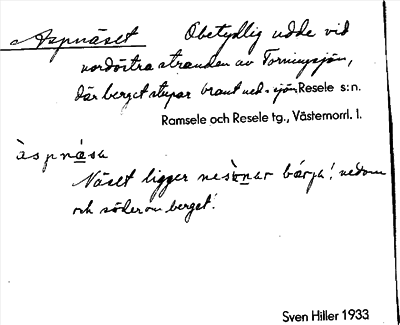 Aspnäset Obetydlig udde vid
nordöstra stranden av Torningsjön,
där berget stupar brant ned i sjön Resele s:n.
Ramsele och Resele tg., Västernorrl. l.
àspnása
Näset ligger nesònar bárjа! nedom
och söder om berget!
Sven Hiller 1933